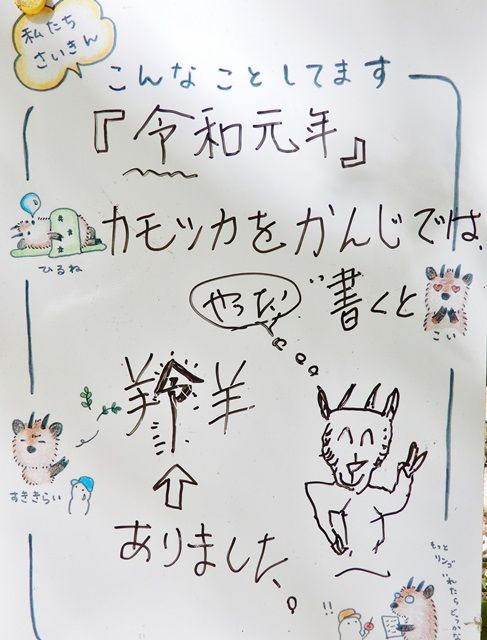 私たち
さいきん
こんなことしてます
『令和元年』
カモシカをかんじでは、
ひるね
やった
書くと
こい
羚羊
すききらい
ありました。
もっと
リンゴ
!!